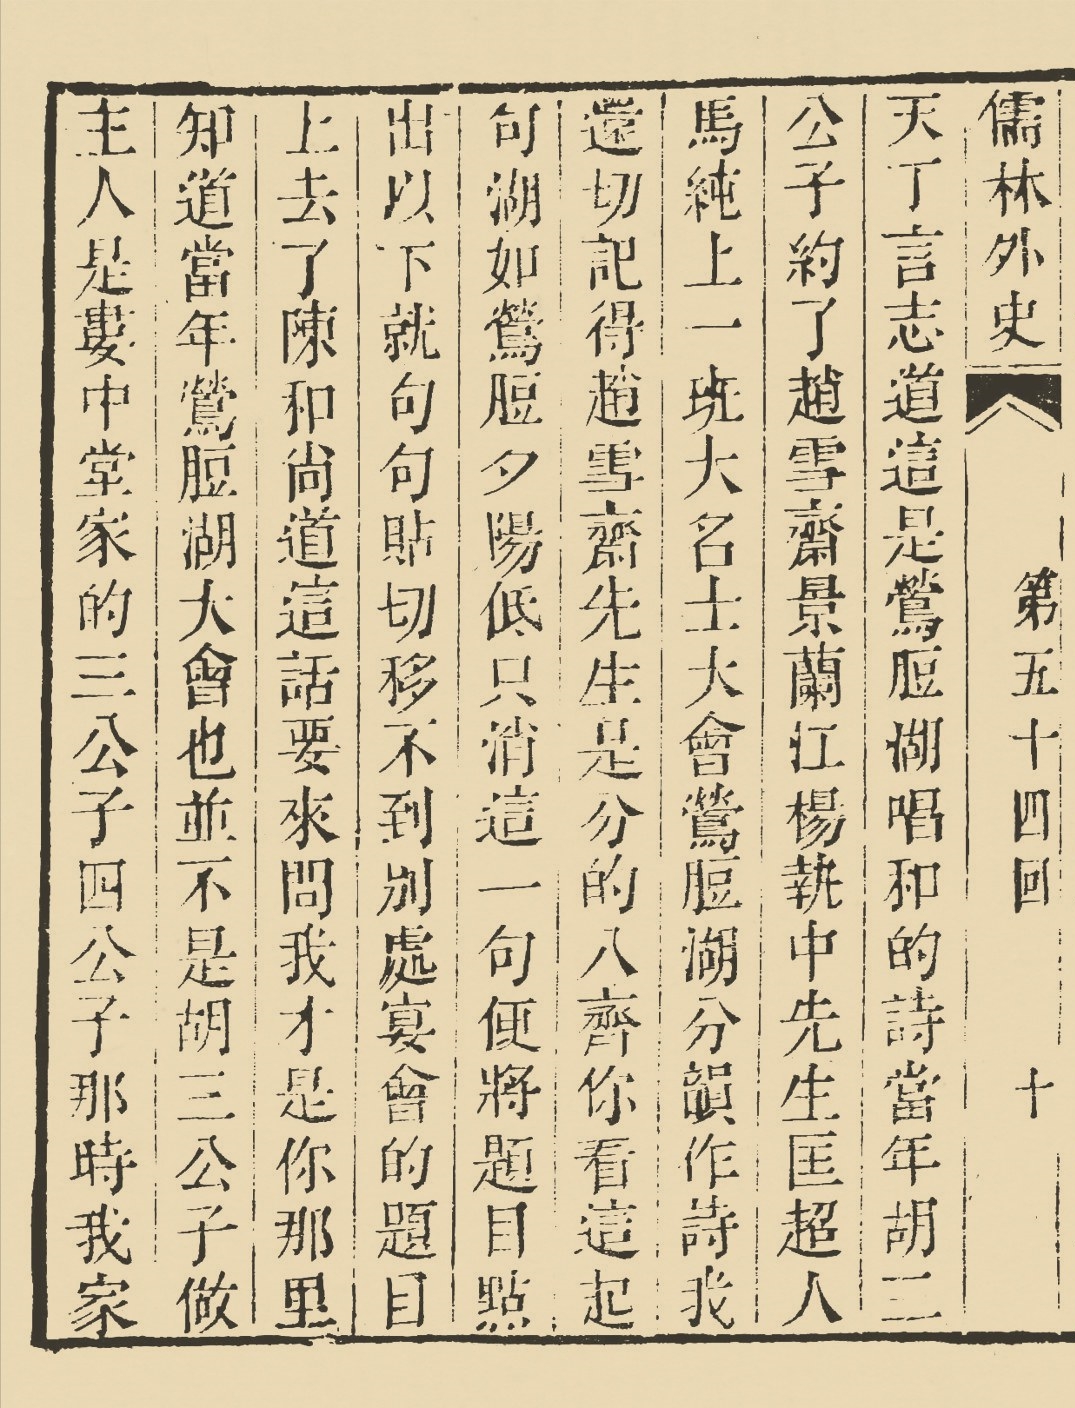 儒林外史 第五十四回 十
天丁言志道這是鶯脰湖唱和的詩當年胡三
公子約了趙雪齋景蘭江楊執中先生匡超人
馬純上一班大名士大會鶯脰湖分韻作詩我
還切記得趙雪齋先生是分的八齊你看這起
句湖如鶯脰夕陽低只消這一句便將題目點
出以下就句句貼切移不到別處宴會的題目
上去了陳和尚道這話要來問我才是你那里
知道當年鶯脰湖大會也並不是胡三公子做
主人是婁中堂家的三公子四公子那時我家